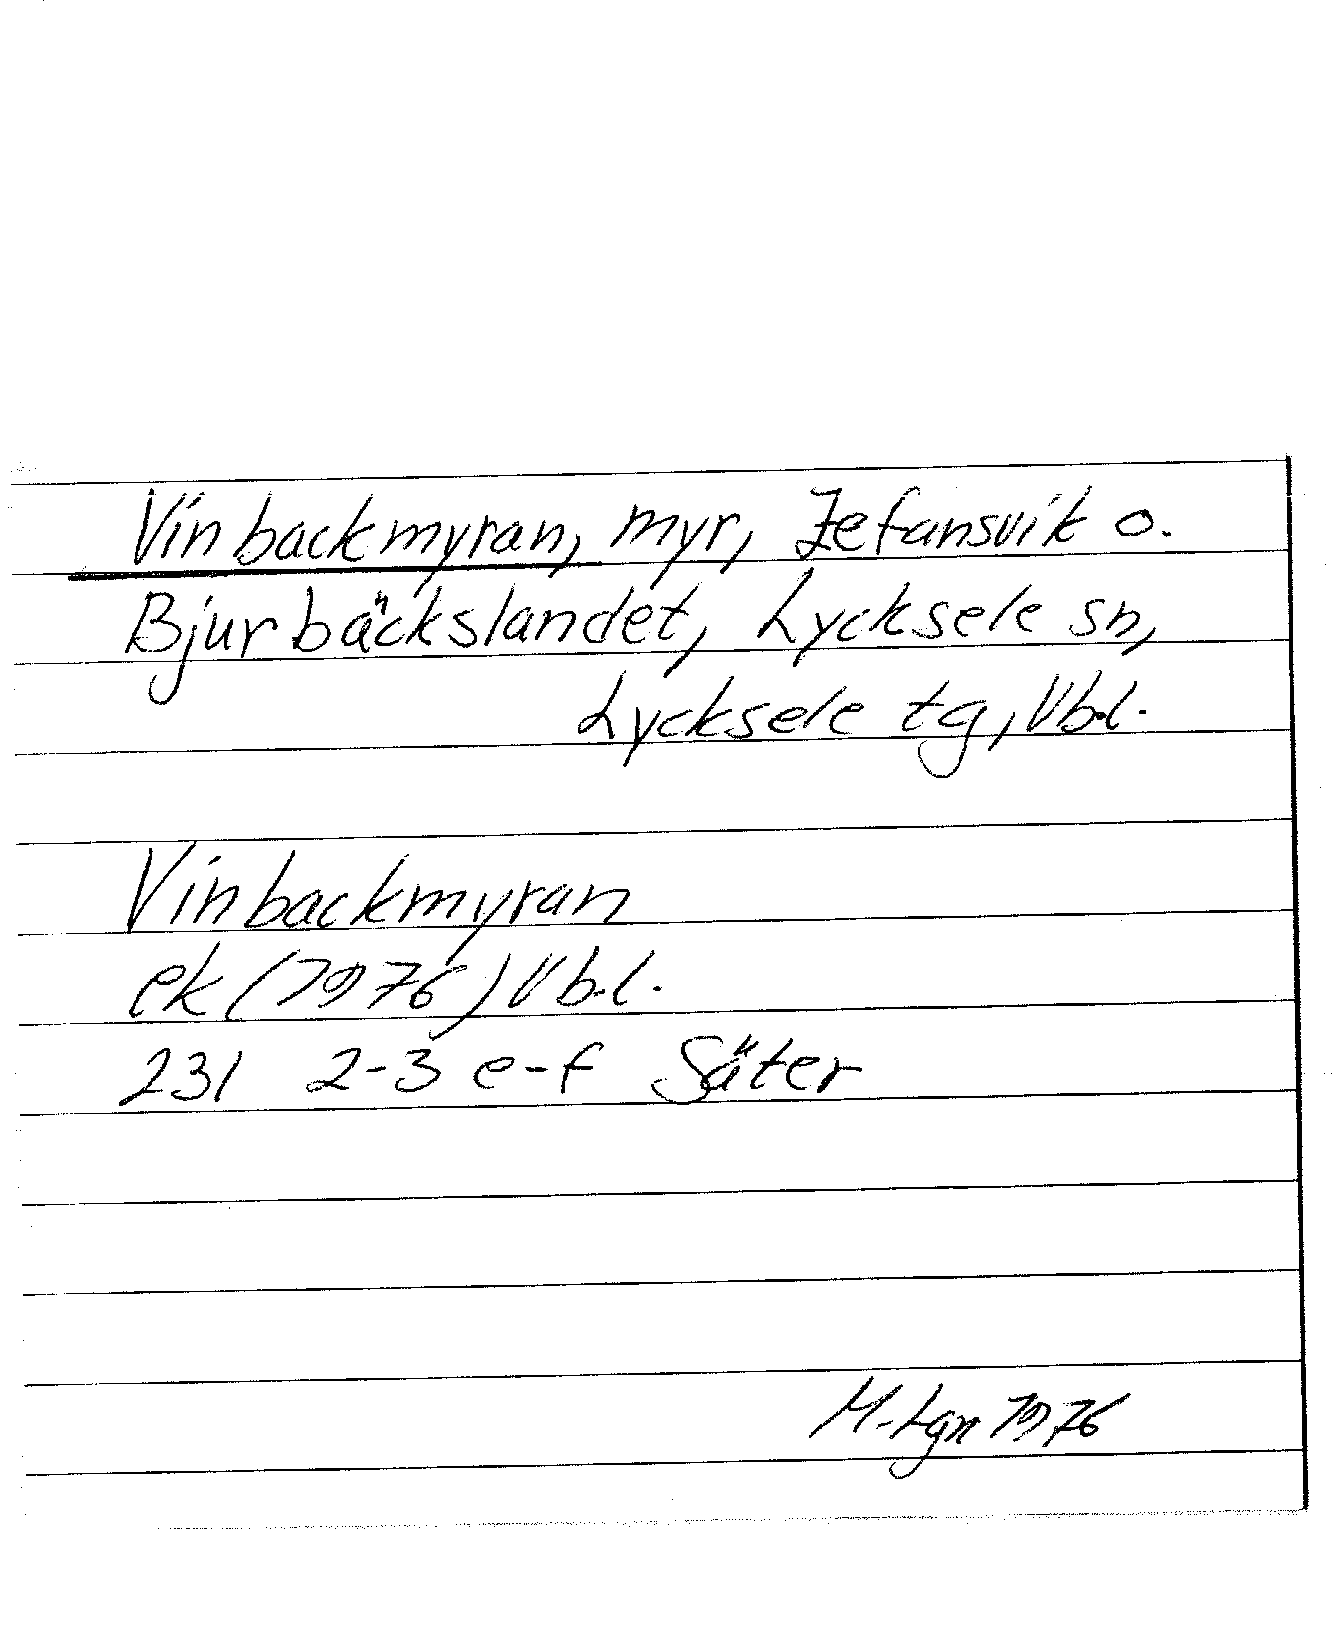 Vinbackmyran, myr, Zefansvik o.
Bjurbäckslandet, Lycksele sn,
Lycksele tg, Vb.l.
Vinbackmyran
ek (1976) Vb.l.
231 2-3 e-f Säter
M-Lgn 1976